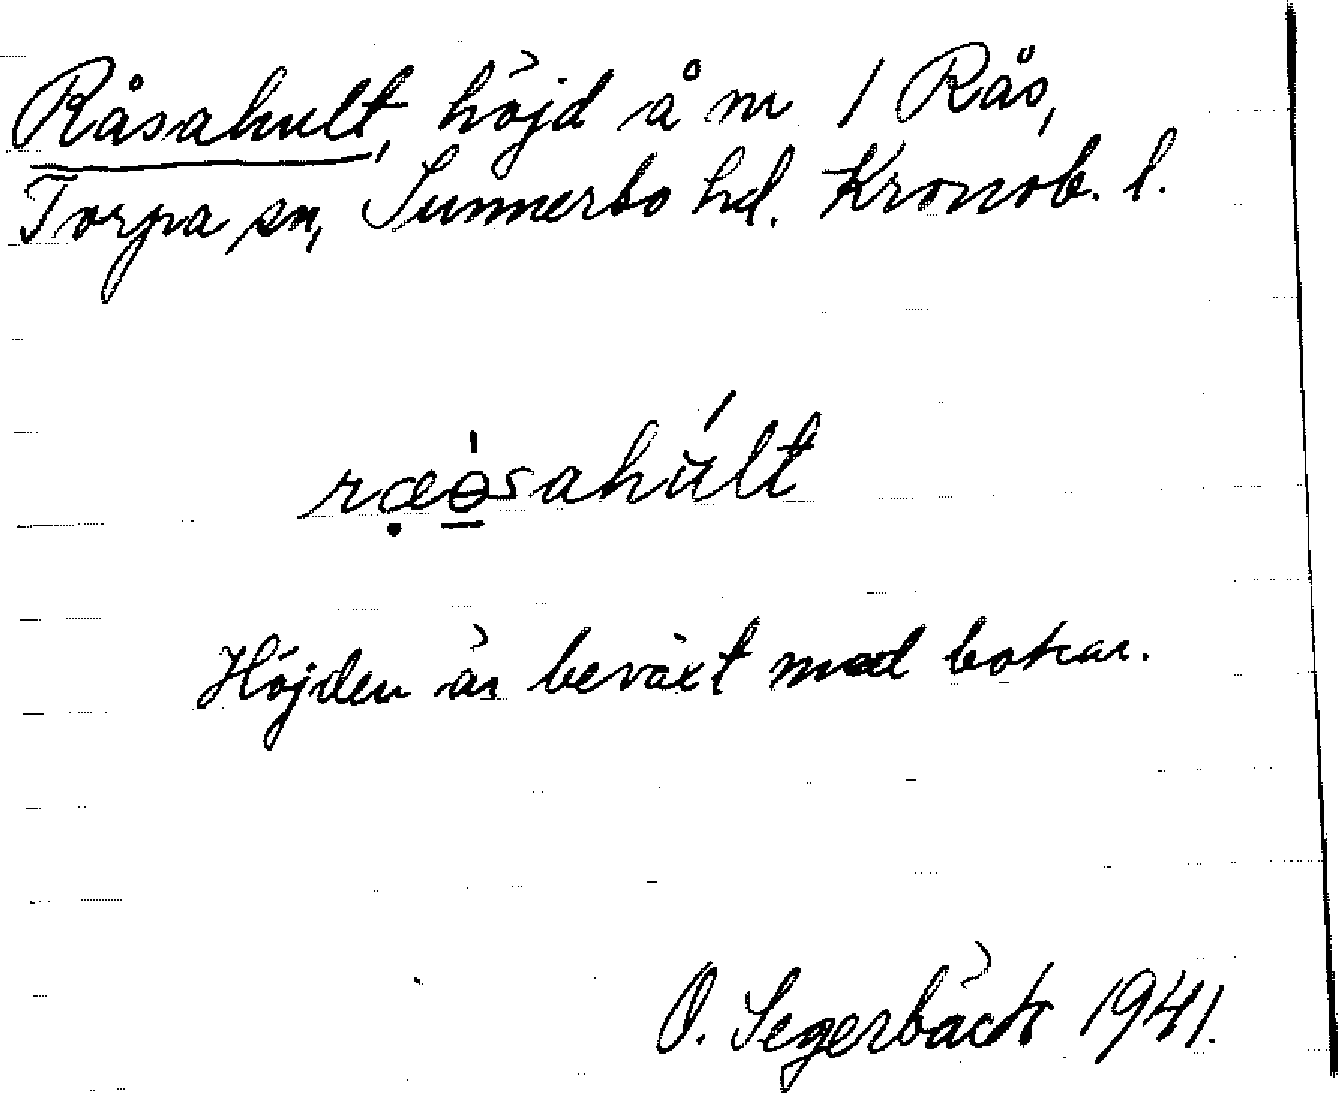 Råsahult, höjd å m 1 Rås,
Torpa sn, Sunnerbo hd. Kronob. l.
ræɵ̲́sahúlt
Höjden är beväxt med bokar.
O. Segerbäck 1941.